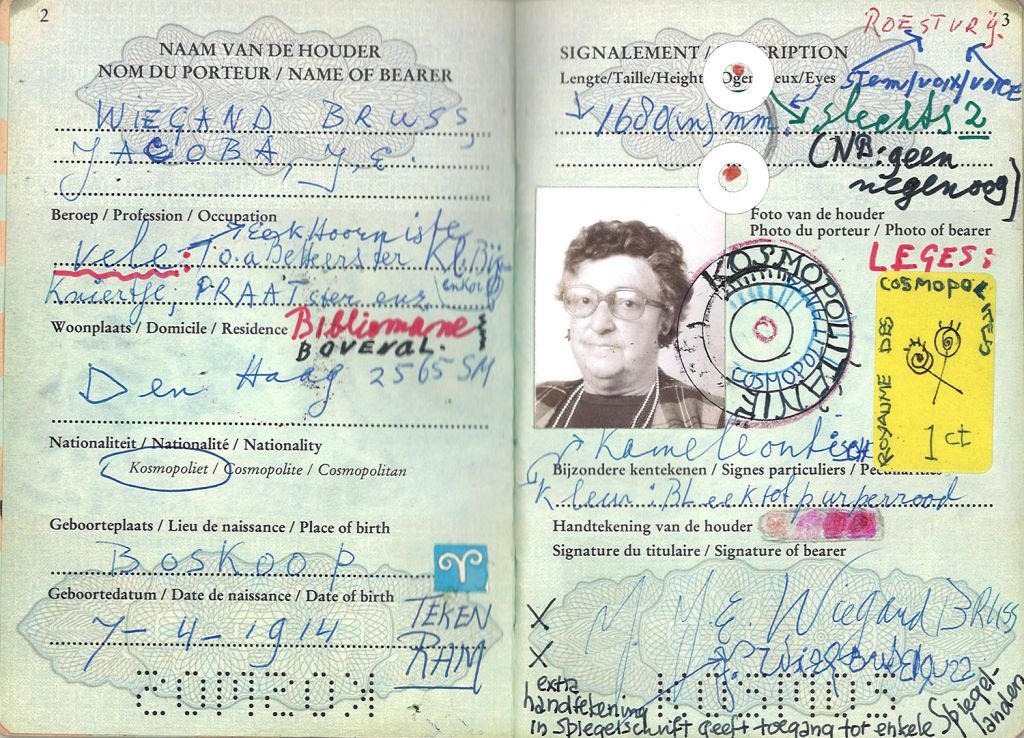 2
NAAM VAN DE HOUDER
NOM DU PORTEUR / NAME OF BEARER
WIEGAND BRUSS,
JACOBA, J.E.
Beroep / Profession / Occupation
vele:
Kniertje, PRAATster enz.
Woonplaats / Domicile / Residence
Bibliomane
BOVENAL.
Den Haag 2565 SM
Nationaliteit / Nationalité / Nationality
Kosmopoliet / Cosmopolite / Cosmopolitan
Geboorteplaats / Lieu de naissance / Place of birth
BOSKOOP
Geboortedatum / Date de naissance / Date of birth
7-4-1914
TEKEN
RAM
3
ROESTVRIJ
SIGNALEMENT /
Lengte/Taille/Height
eux/Eyes
stem/voix/voice
1680(in) mm.
slechts 2
(NB: geen
negenoog)
Foto van de houder
Photo du porteur / Photo of bearer
LEGES:
COSMOPOLITES
ROYAUME DES
1 ct
KOSMOPOLITANIE
COSMOPOL
Kameleontisch
Bijzondere kentekenen / Signes particuliers /
Kleur: BLeek tot purperrood
Handtekening van de houder
Signature du titulaire / Signature of bearer
X
X
Wiegand BRUSS
extra
handtekening
in spiegelschrift geeft toegang tot enkele Spiegel-
landen